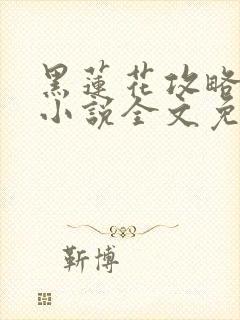 黑蓮花攻略
小說全文免
靳博